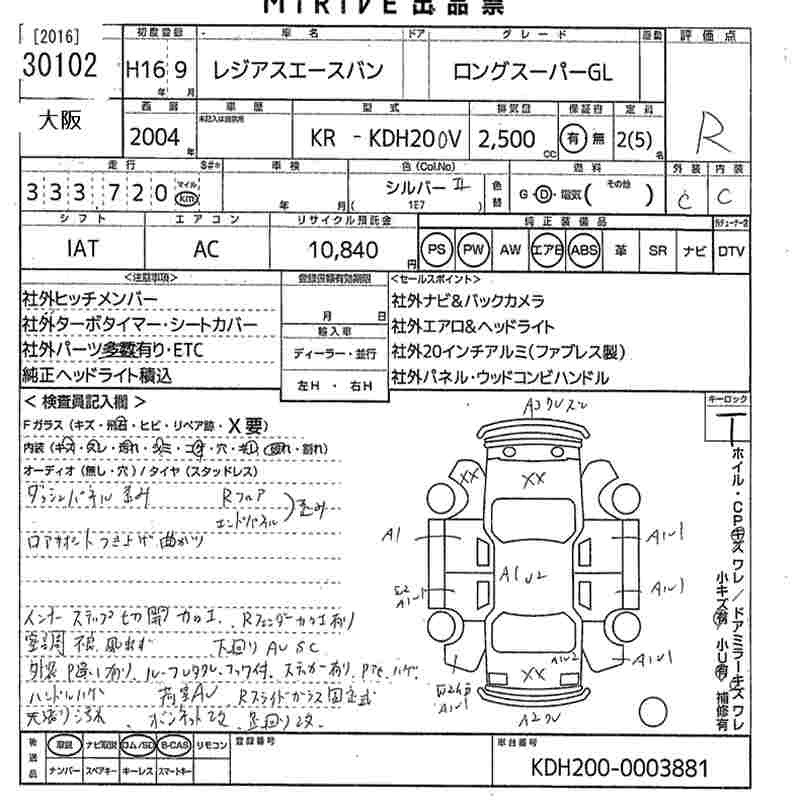 MIRIVE 出品票
[2016]
30102
大阪
初度登録
H16 9
年 月
車名
レジアスエースバン
ドア
グレード
ロングスーパーGL
評価点
R
西暦
2004
年
車歴
未記入は自家用
型式
KR - KDH200V
排気量
2,500
CC
保証書
有 無
定員
2(5)
名
走行
S#*
333,720
マイル
km
車検
年 月
色(Col.No)
シルバー II
( 1E7 )
色替
燃料
G・D・電気( その他 )
外装 内装
C C
シフト
IAT
エアコン
AC
リサイクル預託金
10,840
円
純正装備品
PS PW AW エアB ABS 革 SR ナビ DTV
<注意事項>
社外ヒッチメンバー
社外ターボタイマー・シートカバー
社外パーツ多数有り・ETC
純正ヘッドライト積込
登録書類有効期限
月 日
輸入車
ディーラー・並行
左H・右H
<セールスポイント>
社外ナビ&バックカメラ
社外エアロ&ヘッドライト
社外20インチアルミ(ファブレス製)
社外パネル・ウッドコンビハンドル
< 検査員記入欄 >
Fガラス(キズ・飛石・ヒビ・リペア跡・X要)
オーディオ(無し・穴)/タイヤ(スタッドレス)
ダッシュパネル歪み
Rフロア
エンドパネル
歪み
インナーステップ切開加工、Rフェンダー加工有り
空調不良 風出ず 下廻りAU SC
荷室AU Rスライドガラス固定式
天張り汚れ ボンネット改 足廻り改
キーロック
ホイル・CPキズ ワレ/ドアミラーキズ ワレ
小キズ有 小U有 補修有
XX
XX
A1
A1U1
A1U2
A1U1
A1U1
A1U1
A1U2
XX
A1U1
A2ワレ
後送品
取説 ナビ取説 ロム/SD B-CAS リモコン
ナンバー スペアキー キーレス スマートキー
登録番号
車台番号
KDH200-0003881